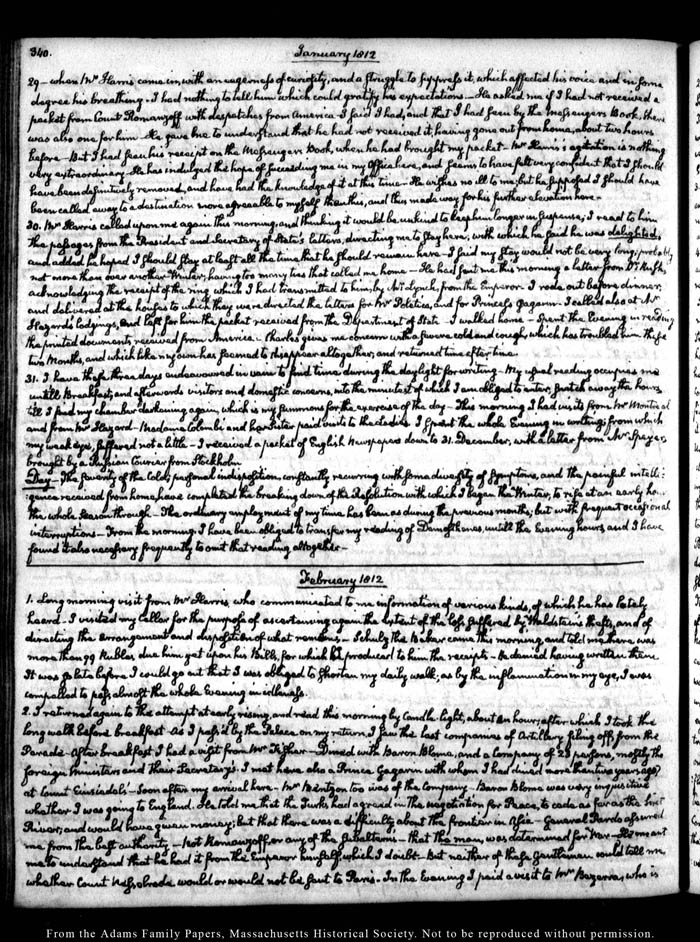 340.
January 1812
29 — when Mr Harris came in, with an eagerness of curiosity, and a struggle to suppress it, which affected his voice and in some
degree his breathing. I had nothing to tell him which could gratify his expectations — He asked me if I had not received a
packet from Count Romanzoff with despatches from America. I said I had, and that I had seen by the Messengers Book, there
was also one for him — He gave me to understand that he had not received it, having gone out from home, about two hours
before — But I had seen his receipt on the Messengers Book, when he had brought my packet — Mr Harris's agitation is nothing
very extraordinary. He has indulged the hope of succeeding me in my Office here, and seems to have felt very confident that I should
have been definitively removed, and have had the knowledge of it at this time. He wishes no ill to me; but he supposed I should have
been called away to a destination more agreeable to myself than this, and thus made way for his further elevation here —
30. Mr Harris called upon me again this morning, and thinking it would be unkind to keep him longer in suspense, I read to him
the passages from the President and Secretary of State's letters, directing me to stay here, with which he said he was delighted,
and added he hoped I should stay at least all the time that he should remain here — I said my stay would not be very long; probably
not more than over another Winter, having too many ties that called me home — He had sent me this morning a letter from Dr Rush,
acknowledging the receipt of the ring which I had transmitted to him, by Mr Lynch, from the Emperor. I rode out before dinner;
and delivered at the houses to which they were directed the letters for Mr Poletica, and for Princess Gagarin — I called also at Mr
Hazard's lodgings, and left for him the packet received from the Department of State — I walked home — Spent the Evening in reading
the printed documents received from America — Charles gives me concern with a severe cold and cough, which has troubled him these
two Months, and which like my own has seemed to disappear altogether; and returned time after time.
31. I have these three days endeavoured in vain to find time during the daylight for writing — My usual reading occupies me
untill Breakfast; and afterwards visitors and domestic concerns, into the minutest of which I am obliged to enter, snatch away the hours,
till I find my chamber darkening again, which is my summons for the exercise of the day — This morning I had visits from Mr Montreal
and from Mr Hazard — Madame Colombi and her Sister paid visits to the Ladies. I spent the whole Evening in writing; from which
my weak eyes, suffered not a little — I received a packet of English Newspapers down to 31. December, with a letter from Mr Speyer,
brought by a Russian Courier from Stockholm
Day — The severity of the Cold; personal indisposition, constantly recurring with some diversity of Symptoms, and the painful intelli-
:gence received from home, have completed the breaking down of the Resolution with which I began the Winter, to rise at an early ho
the whole Season through — The ordinary employment of my time has been as during the previous months; but with frequent occasional
interruptions — From the morning, I have been obliged to transfer my reading of Demosthenes, untill the Evening hours, and I have
found it also necessary frequently to omit that reading altogether —
February 1812
1. Long morning visit from Mr Harris, who communicated to me information of various kinds, of which he has lately
heard — I visited my Cellar for the purpose of ascertaining again the extent of the loss suffered by Waldstein's thefts, and of
directing the arrangement and disposition of what remains — Schulz the Baker came this morning, and told me there was
more than 99 Rubles due him yet upon his Bills, for which I produced to him the receipts — He denied having written them
It was so late before I could go out that I was obliged to shorten my daily walk; as by the inflammation in my eye, I was
compelled to pass almost the whole Evening in idleness.
2. I returned again to the attempt at early rising, and read this morning by Candle light, about an hour; after which I took the
long walk before breakfast. As I pass'd by the Palace on my return, I saw the last companies of Artillery filing off, from the
Parade — After breakfast I had a visit from Mr Fisher — Dined with Baron Blome, and a Company of 23 persons, mostly the
foreign Ministers and their Secretary's. I met here also a Prince Gagarin with whom I had dined more than two years ago
at Count Einsiedel's — Soon after my arrival here — Mr Bentzon too was of the Company — Baron Blome was very inquisitive
whether I was going to England. He told me that the Turks had agreed in the negotiation for Peace, to cede as far as the Pruth
River; and would have given money; but that there was a difficulty about the frontier in Asia — General Pardo assured
me from the best authority — Not Romanzoff, or any of the Subalterns — that the man, was determined for War — He meant
me to understand that he had it from the Emperor himself, which I doubt — But neither of these Gentlemen could tell me
whether Count Nesselrode would or would not be sent to Paris — In the Evening I paid a visit to Mrs Bezerra, who is
From the Adams Family Papers, Massachusetts Historical Society. Not to be reproduced without permission.